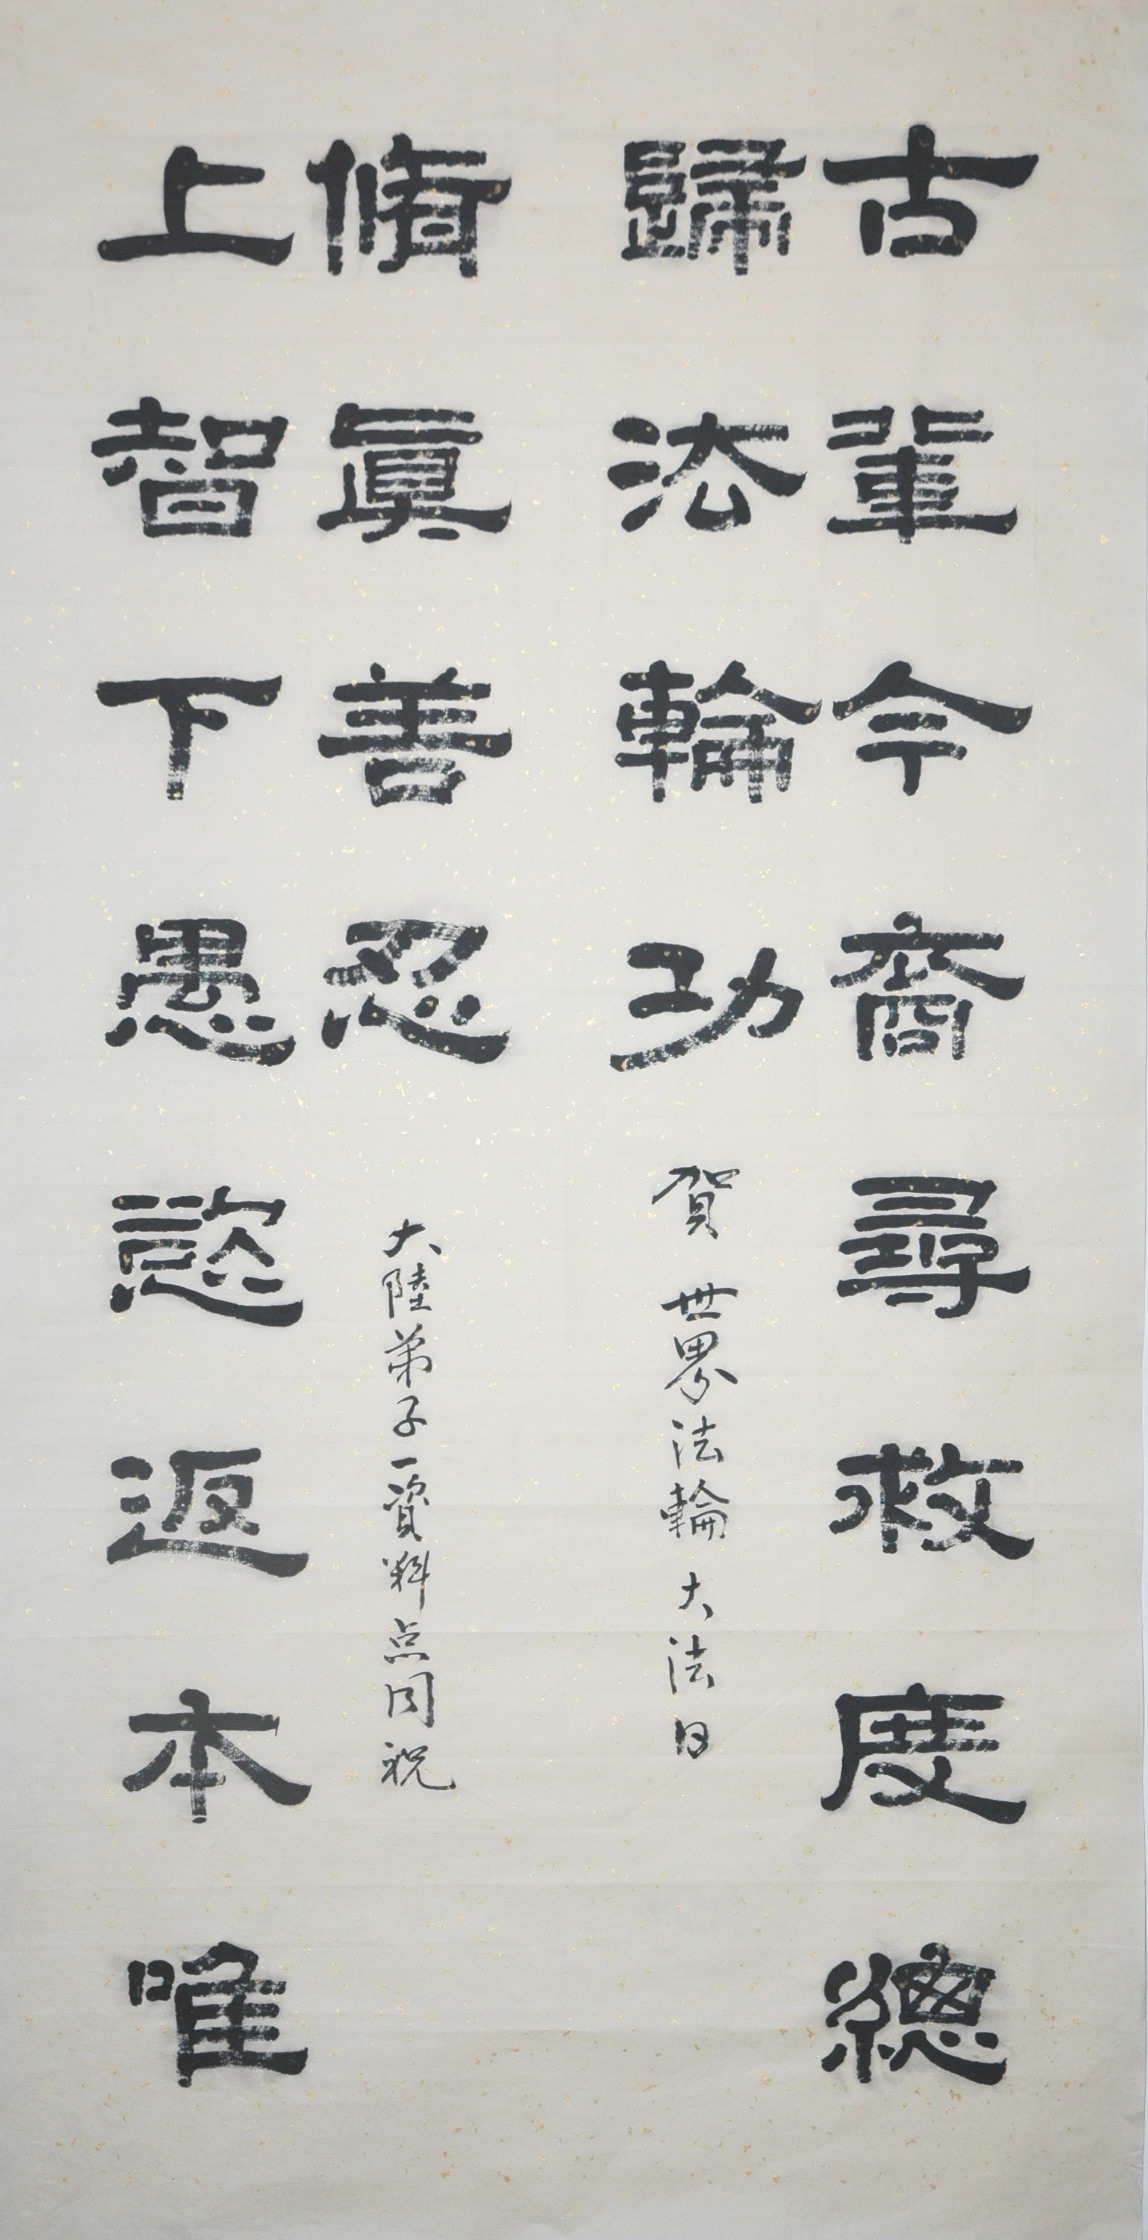 古輩今裔尋救度總
歸法輪功
賀 世界法輪大法日
上智下愚慾返本唯
脩眞善忍
大陸弟子一資料点同祝